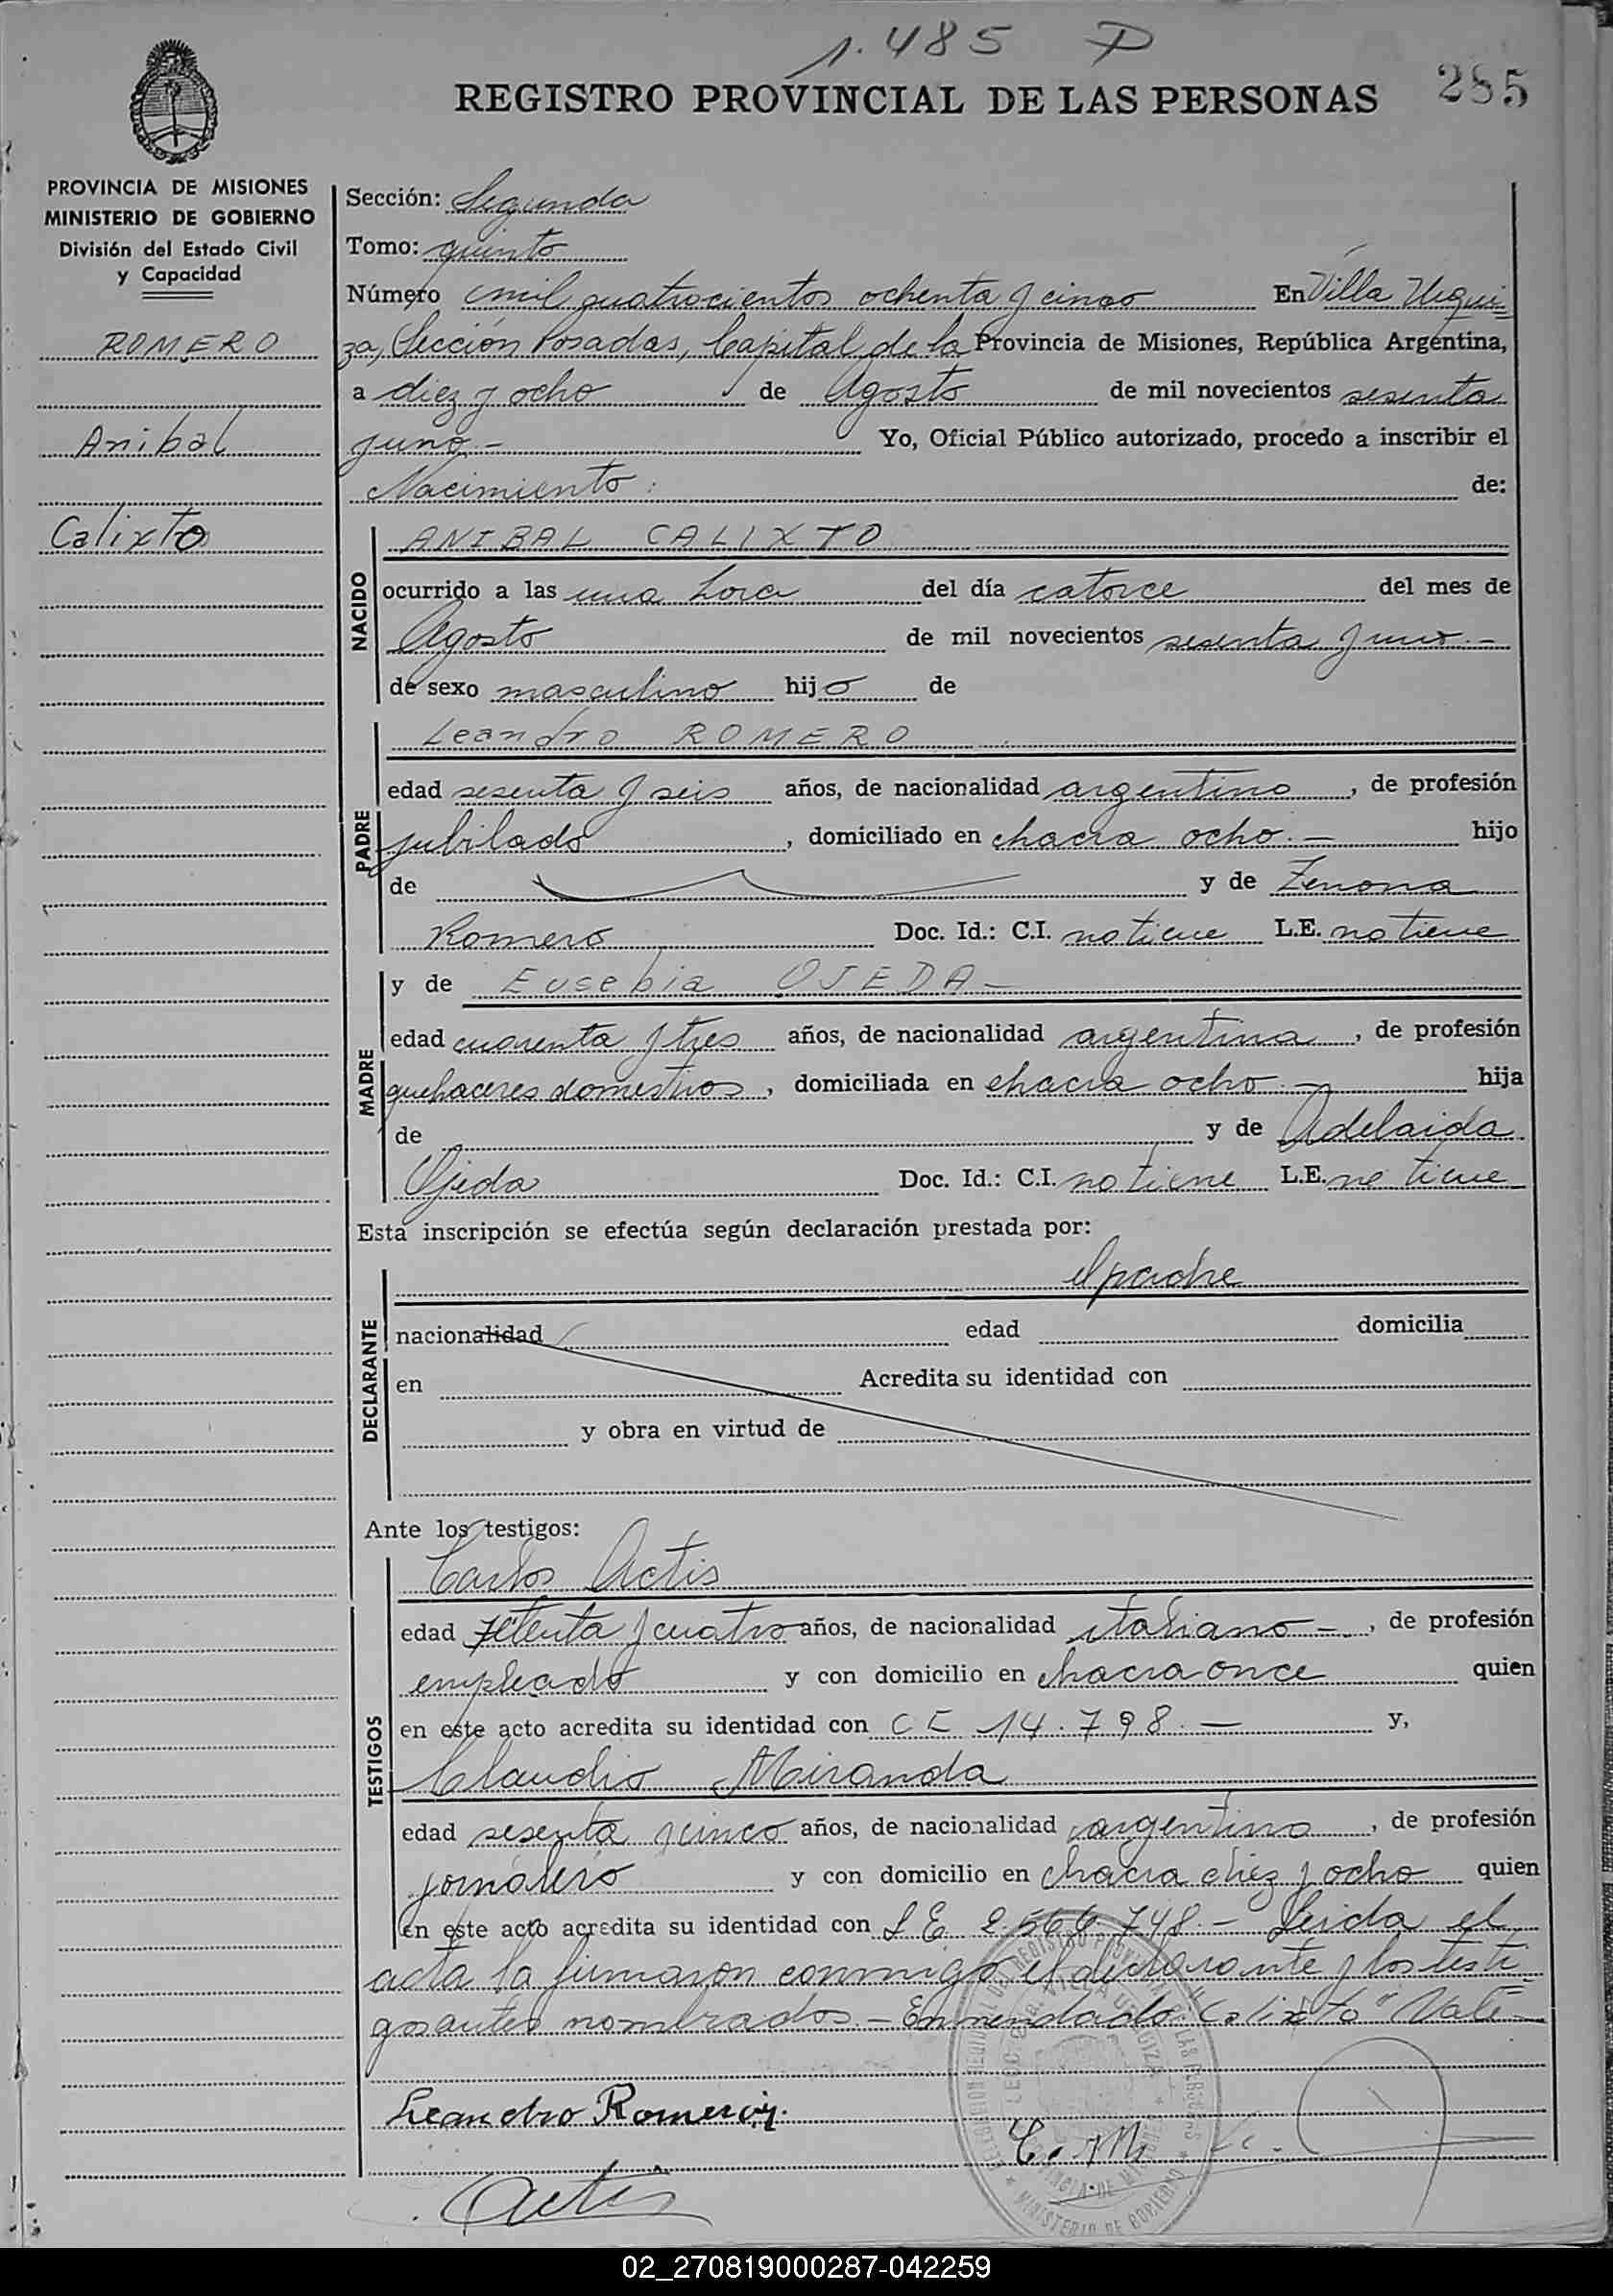 1.485 D
REGISTRO PROVINCIAL DE LAS PERSONAS 285
PROVINCIA DE MISIONES
MINISTERIO DE GOBIERNO
División del Estado Civil
y Capacidad
ROMERO
Anibal
Calixto
Sección: Segunda
Tomo: quinto
Número mil quatrocientos ochenta y cinco En Villa Urqui
za, Sección Posadas, Capital de la Provincia de Misiones, República Argentina,
a diez y ocho de Agosto de mil novecientos sesenta
y uno - Yo, Oficial Público autorizado, procedo a inscribir el
Nacimiento: de:
NACIDO
ANIBAL CALIXTO
ocurrido a las una hora del día catorce del mes de
Agosto de mil novecientos sesenta y uno.-
de sexo masculino hijo de
PADRE
Leandro ROMERO
edad sesenta y seis años, de nacionalidad argentino, de profesión
jubilado, domiciliado en chacra ocho.- hijo
de y de Zenona
Romero Doc. Id.: C.I. no tiene L.E. no tiene
MADRE
y de Eusebia OJEDA -
edad cuarenta y tres años, de nacionalidad argentina, de profesión
quehaceres domesticos, domiciliada en chacra ocho.- hija
de y de Adelaida
Ojeda Doc. Id.: C.I. no tiene L.E. no tiene
Esta inscripción se efectúa según declaración prestada por:
DECLARANTE
el padre
nacionalidad edad domicilia
en Acredita su identidad con
y obra en virtud de
Ante los testigos:
TESTIGOS
Carlos Actis
edad setenta y cuatro años, de nacionalidad italiano -, de profesión
empleado y con domicilio en chacra once quien
en este acto acredita su identidad con CE 14.798.- y,
Claudio Miranda
edad sesenta y cinco años, de nacionalidad argentino, de profesión
jornalero y con domicilio en chacra diez y ocho quien
en este acto acredita su identidad con LE 2.566.748.- Leida el
acta la firmaron conmigo el declarante y los testi
gos antes nombrados.- Enmendado: "Calixto" Vale -
Leandro Romero
C. M.
Actis
02_270819000287-042259